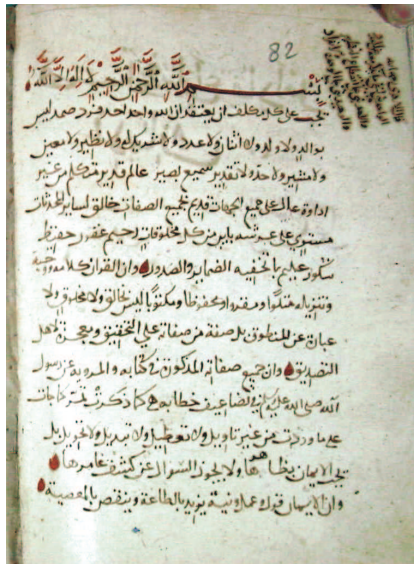 82
بسم الله الرحمن الرحيم لا إله إلا الله
يجب على كل مكلف ان يعتقد ان الله واحد احد فرد صمد ليس
بوالد ولا ولد ولا اثنان ولا عدد ولا شريك له ولا نظير ولا معين
ولا مشير ولا حد ولا تقدير سميع بصير عالم قدير متكلم من غير
اداوة عال على جميع الجهات قديم بجميع الصفات خالق لساير المحدثات
مستوي على عرشه باين من كل مخلوقات رحيم غفور حفيظ
شكور عليم بما تخفيه الضماير والصدور وان القران كلامه ووحيه
وتنزيله متلوا ومقروا ومحفوظا ومكتوبا ليس بخالق ولا مخلوق ولا
عبارة عن المنطوق بل صفة من صفاته على التحقيق ويعجز لاهل
التصديق وان جميع صفاته المذكورة في كتابه والمروية عن رسول
الله صلى الله عليه وسلم في تضاعيف خطابه هي كما ذكرت تمر كما جات
على ما وردت من غير تاويل ولا تعطيل ولا تبديل ولا تحويل بل
يجب الايمان بظاهرها ولا يجوز السوال عن كشف غامرها
وان الايمان قول وعمل ونية يزيد بالطاعة وينقص بالمعصية